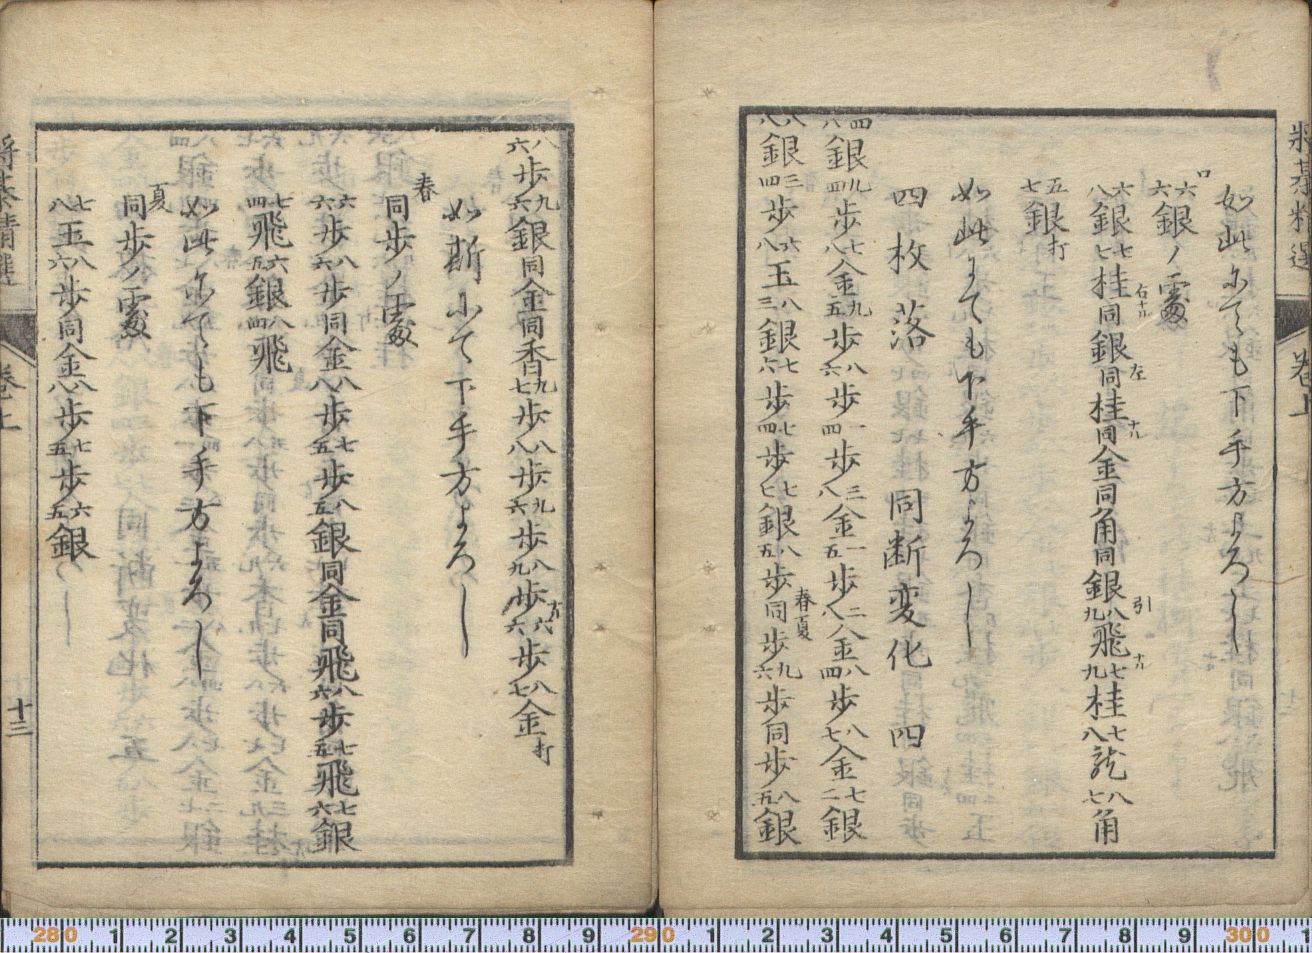 將棊精選 巻上
如此にても下手方よろし
ロ 六六銀ノ處
六八銀七七桂右ナル同銀同桂左ナル同金同角同銀八九飛引七九桂ナル七八龍八七角
五七銀打
如此にても下手方よろし
四枚落 同断変化 四
四八銀九四歩七八金九五歩八六歩一四歩三八金一五歩二八金八四歩八七金七二銀
八八銀三四歩六八玉八三銀七六歩七四歩七七銀八五歩同歩春夏九六歩同歩八五銀
八六歩九六銀同金同香九七歩八八歩九六歩八九歩六歩八七金打
如斯にて下手方よろし
春 同歩ノ處
六六歩八六歩同金八八歩七五歩八五銀同金同飛八六歩七五飛七六銀
七四飛六五銀八四飛
如此にても下手方よろし
夏 同歩ノ處
七八玉八六歩同金八八歩七五歩六五銀
將棊精選 巻上 十三